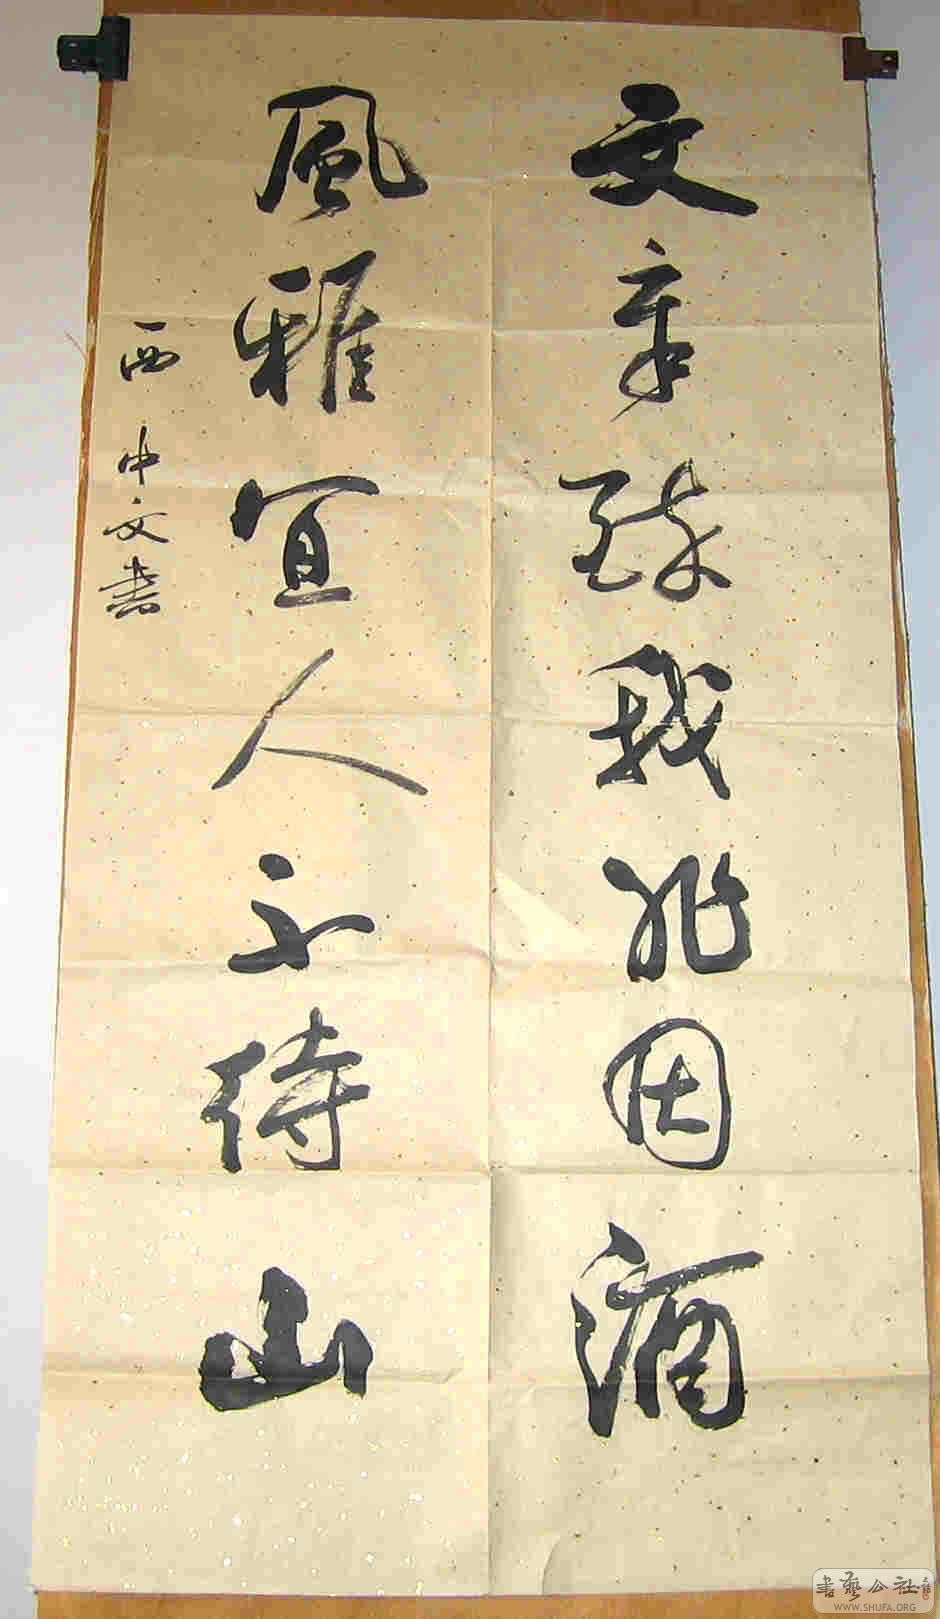 文章醉我非因酒
風雅宜人不待山
西中文書
書藝公社
WWW.SHUFA.ORG